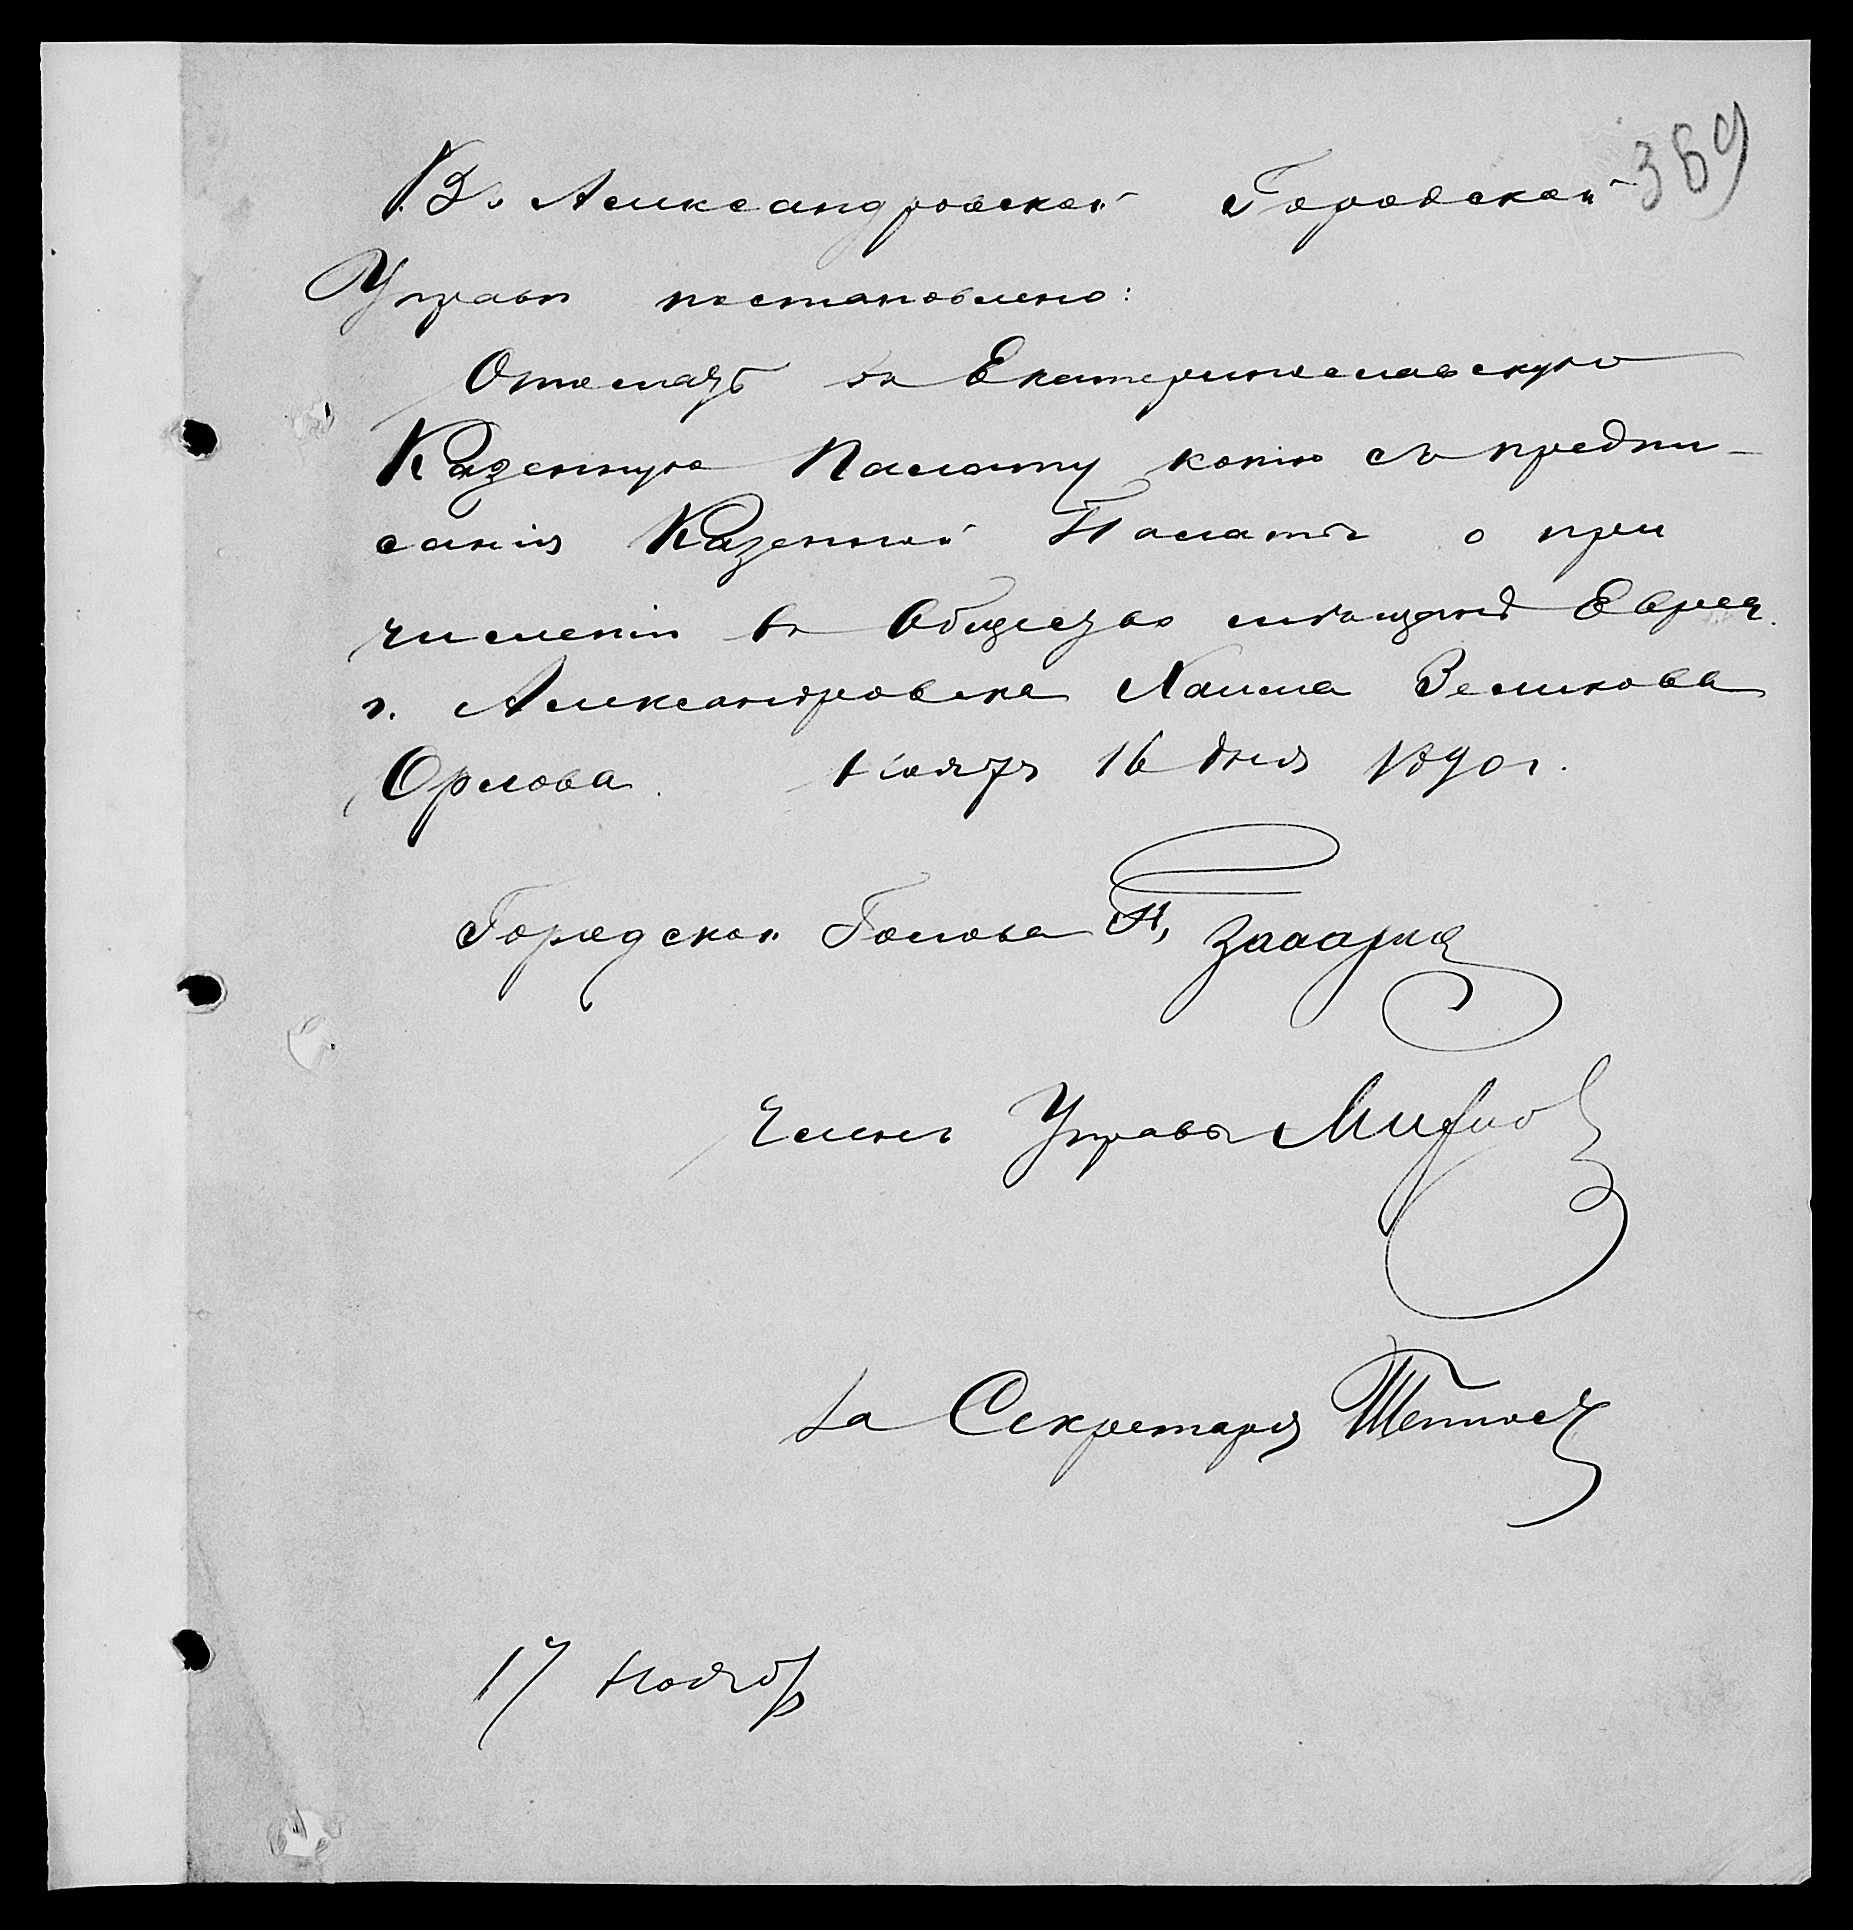 369
Въ Александровской Городской
Управѣ постановлено:
Отослать въ Екатеринославскую
Казенную Палату копію съ предпи-
санія Казенной Палаты о при
численіи въ Общество мѣщанъ Еврея
г. Александровска Хаима Зеликова
Орлова. Ноября 16 дня 1890 г.
Городской Голова
Членъ Управы
За Секретаря
17 Ноябр